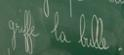 griffe la bulle